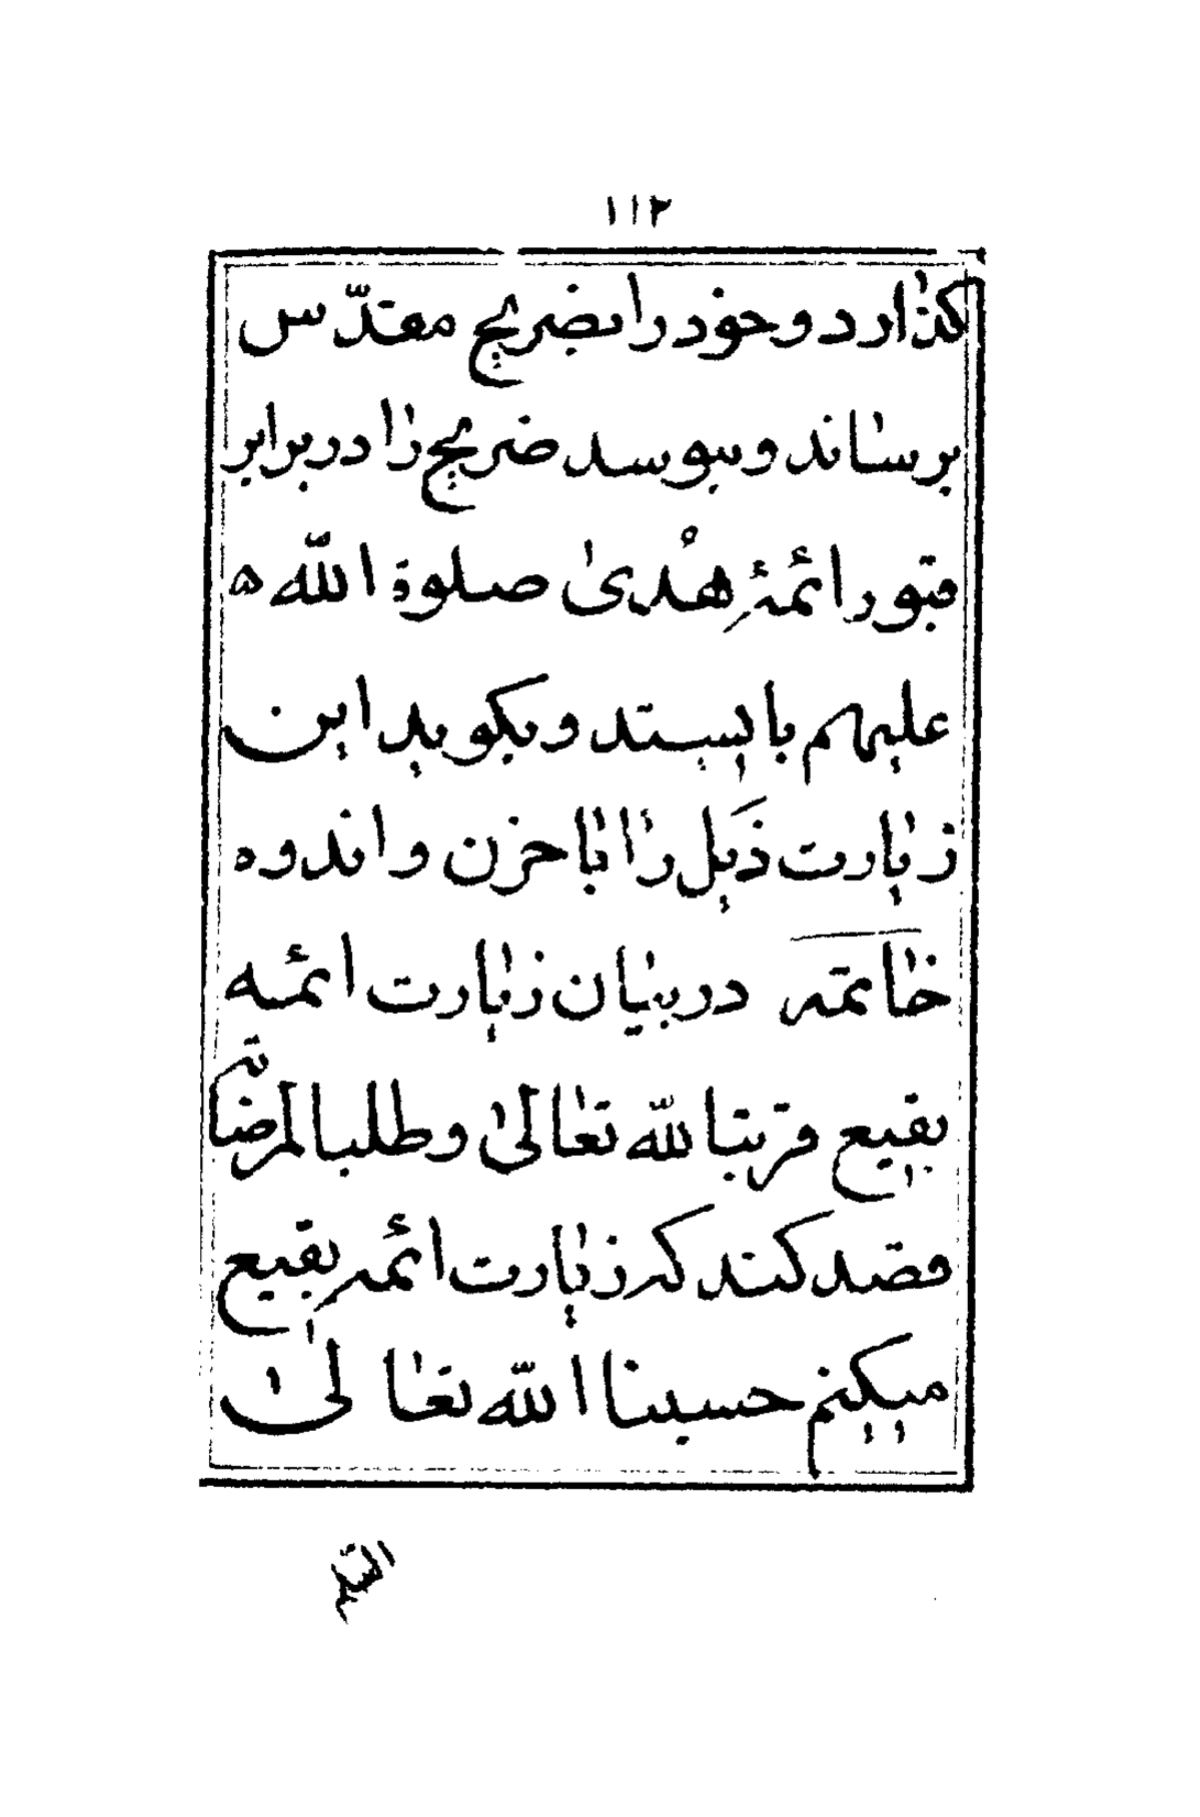 ۱۱۲
کذارد و خود را بضریح مقدّس
برساند و ببوسد ضریح را در برابر
قبور ائمۀ هْدیٰ صلوة اللّه ه
علیهم بایستد و بکوید این
زیارت ذَیل را با حزن و اندوه
خاتمه در بیان زیارت ائمه
بقیع قربتا للّه تعالیٰ و طلبا لمرضاته
قصد کند که زیارت ائمه بقیع
میکنم حسبنا اللّه تعالیٰ
السّلم